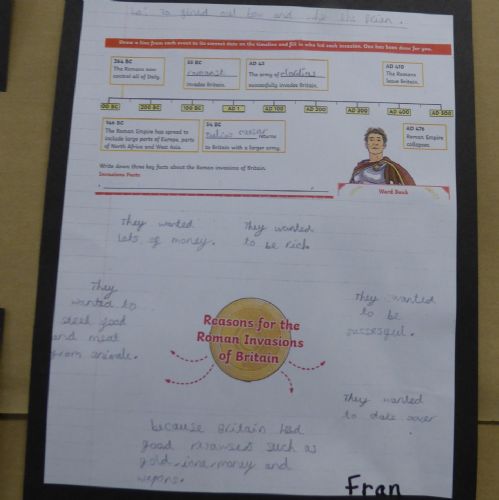 Draw a line from each event to its correct date on the timeline and fill in who led each invasion. One has been done for you.
264 BC
The Romans now
control all of Italy.
55 BC
invades Britain.
AD 43
The army of
successfully invades Britain.
AD 410
The Romans
leave Britain.
00 BC 200 BC 100 BC AD 1 AD 100 AD 200 AD 300 AD 400 AD 500
146 BC
The Roman Empire has spread to
include large parts of Europe, parts
of North Africa and West Asia.
54 BC
returns
to Britain with a larger army.
AD 476
Roman Empire
collapses.
Write down three key facts about the Roman invasions of Britain.
Invasions Facts
Word Bank
They wanted
lots of money.
They wanted
to be rich.
They
wanted to
steal food
and meat
from animals.
Reasons for the
Roman Invasions
of Britain
They wanted
to be
They wanted
to over
because Britain had
good such as
gold money and
Fran